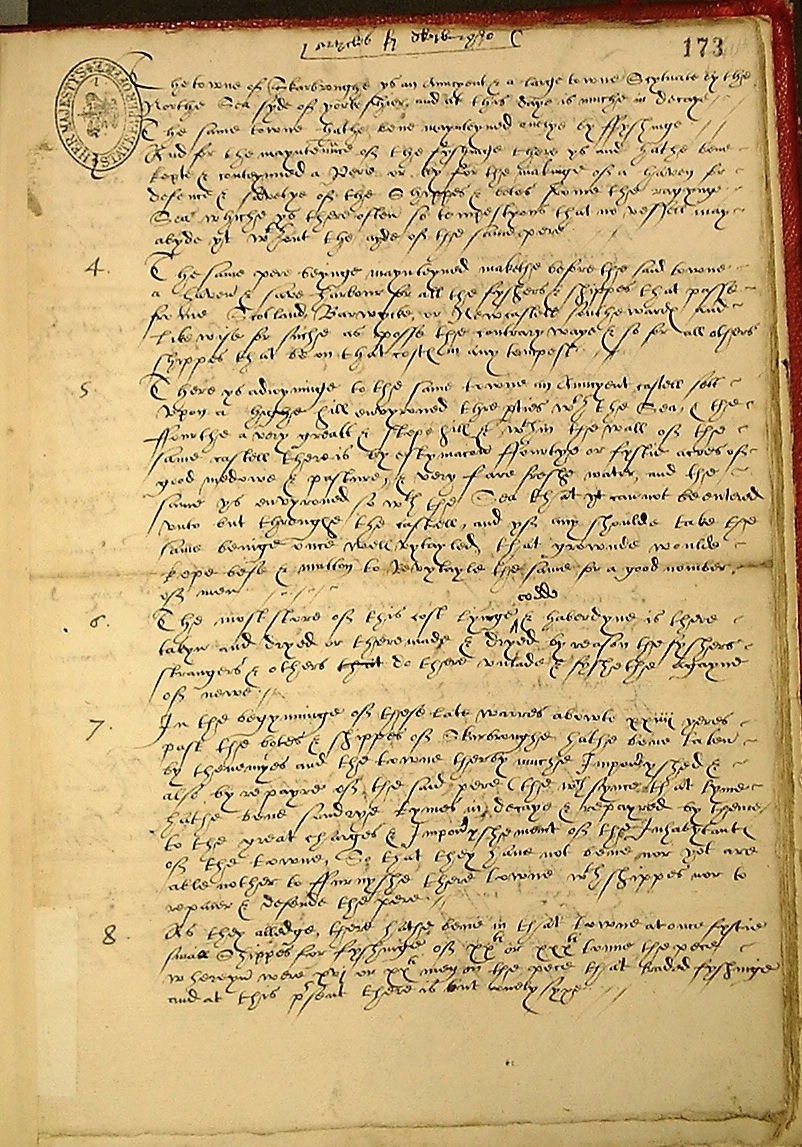 articles
173
HER MAJESTYS
The towne of Skarbroughe ys an Auncyent & a large towne Scytuate by the
Northe Sea syde of yorke shier and at this daye is muche in decaye
The same towne hathe bene maynteyned onelye by ffysshinge
And for the mayntenñce of the fysshinge there ys and hathe bene
kepte & conteynned a Pere or key for the makinge of a haven for
defence & savetye of the Shippes & botes frome the ragynge
Sea whiche ys there often so tempestyous that no vessell may
abyde yt wthout the ayde of the same pere
4. The same pere beynge maynteyned makethe before the said towne
a haven & save harbour for all the fysshers & shippes that passe
frome Scotland Barwycke, or Newcastell Southewardes and
likewise for suche as passe the contrary waye & so for all others
shippes that be on that coste in any tempest
5 There ys adioyninge to the same towne an Auncyent castell sett
vpon a hughe hill envyroned thre pties wth the Sea, & the
ffourthe a very greatt & stepe hill & wthin the wall of the
same castell there is by estymacon ffourtye or fyftie acres of
good medowe & pasture, & very faire freshe water, and the
same ys envyroned so wth the Sea that yt can not be entered
vnto but throughe the castell, and yf any shoulde take the
same beinge once well vytayled that grownde woulde
kepe befe & mutton to revytayle the same for a good nomber
of men
codde
6. The most store of this cost lynge & haberdyne is there
taken and dryed or there made & dryed by reason the fysshers
strangers & others do there vnlade & fysshethe agayne
of newe
7. In the begynninge of these late warres abowte xxiiii yeres
past the botes & shippes of Skarbroughe hathe bene taken
by thenemyes and the towne therby muche Impouyshed &
also by repayre of the said pere (the wch synce that tyme
hathe bene sundrye tymes in decaye & repayred by them
to the great charges & Impouyshement of the Inhabytantes
of the towne, So that they have not bene nor yet are
able nother to ffurnyshe there towne wth shippes nor to
repaier & defende the pere
8 As they alledge, there hathe bene in that towne at once fyftie
small Shippes for fysshinge of xxti or xxxti tonne the pece
wherein were xvj or xxti men on the pece that traded fysshinge
and at this pñsent there is but onely syxe